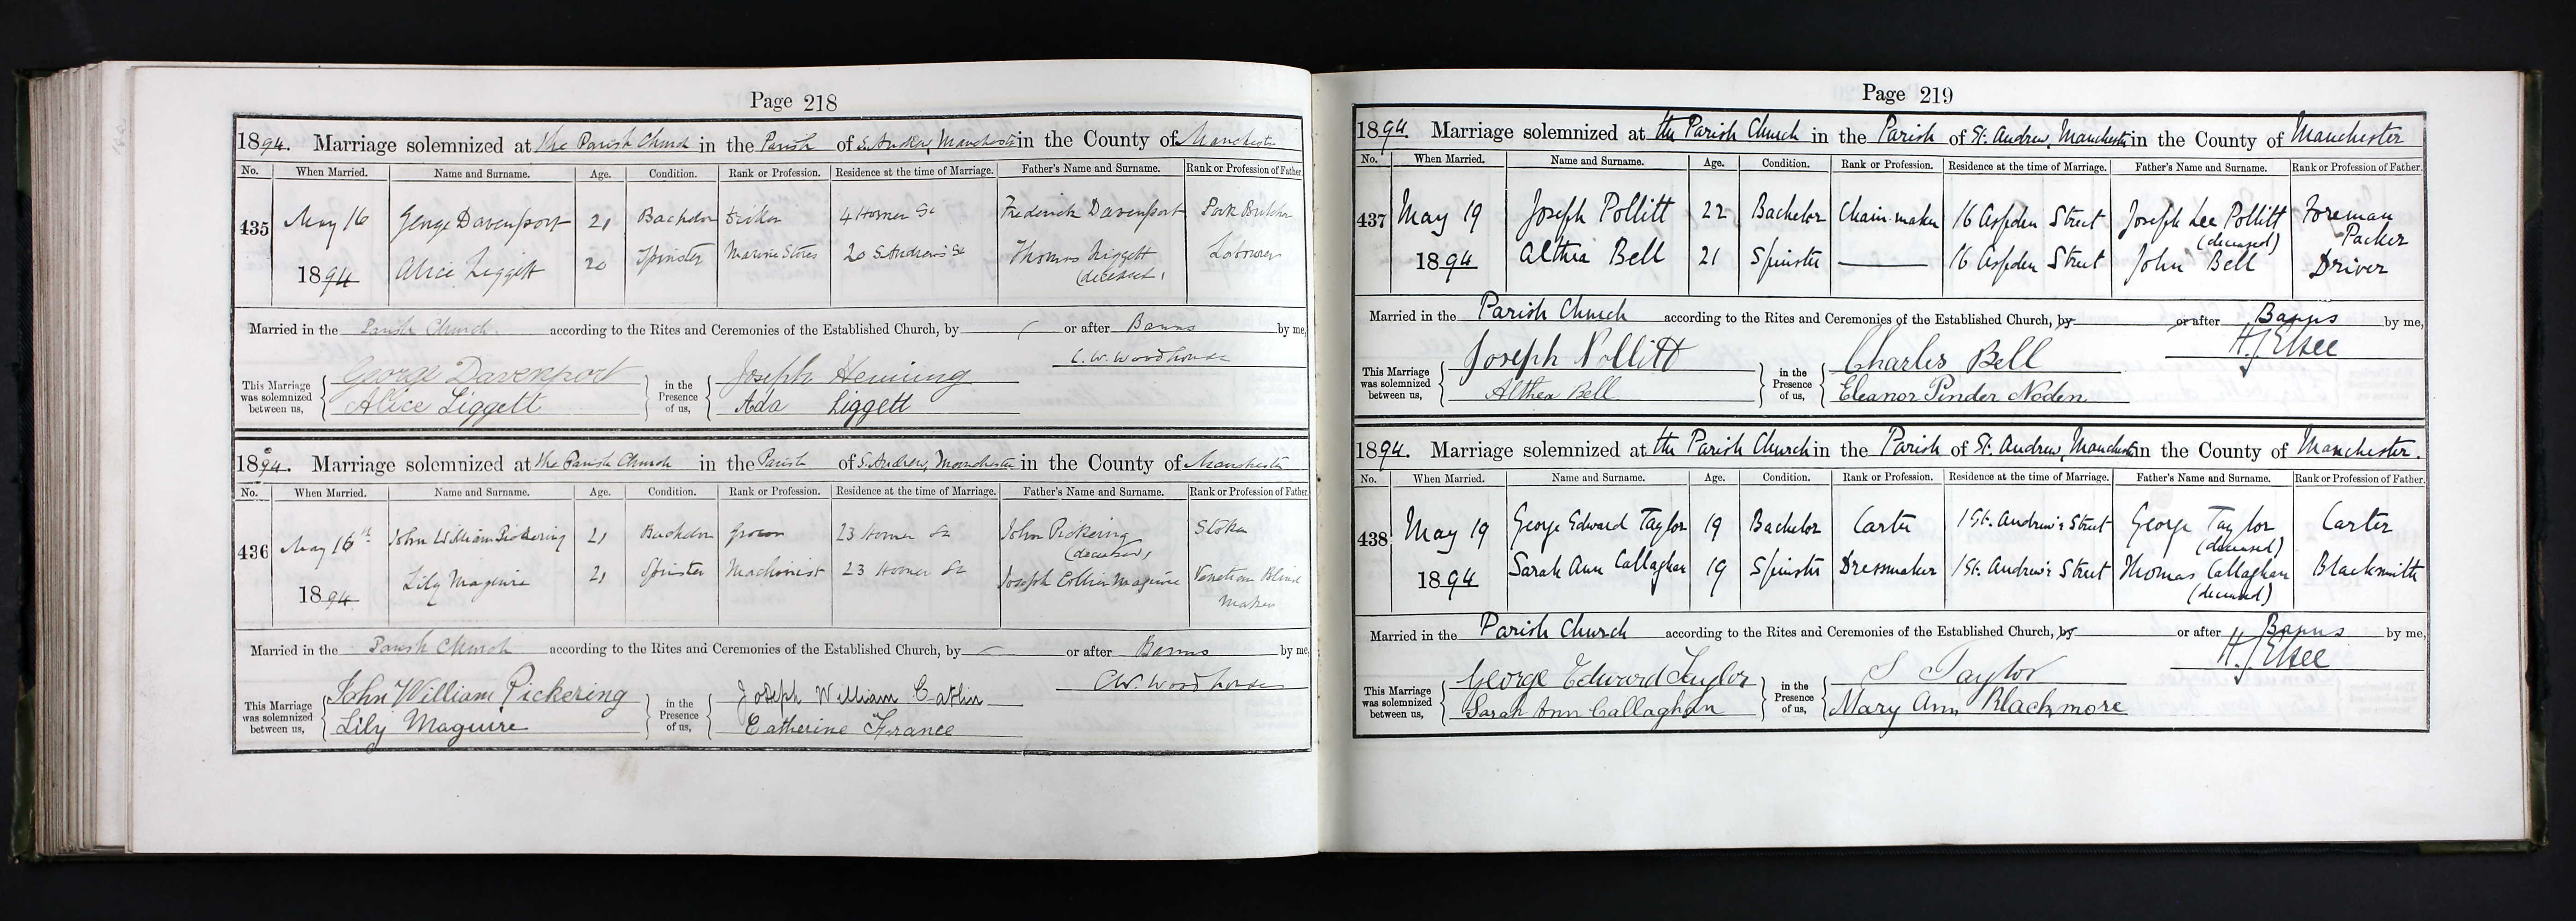 Page 218
1894. Marriage solemnized at the Parish Church in the Parish of S. Andrew, Manchester in the County of Manchester
No. When Married. Name and Surname. Age. Condition. Rank or Profession. Residence at the time of Marriage. Father's Name and Surname. Rank or Profession of Father.
435 May 16 George Davenport 21 Bachelor Striker 4 Homer St Frederick Davenport Pork Butcher
1894 Alice Liggett 20 Spinster Marine Stores 20 S. Andrew's St Thomas Liggett Labourer
(deceased)
Married in the Parish Church according to the Rites and Ceremonies of the Established Church, by or after Banns by me,
C. W. Woodhouse
This Marriage was solemnized between us, George Davenport Alice Liggett in the Presence of us, Joseph Heming Ada Liggett
1894. Marriage solemnized at the Parish Church in the Parish of S. Andrew, Manchester in the County of Manchester
No. When Married. Name and Surname. Age. Condition. Rank or Profession. Residence at the time of Marriage. Father's Name and Surname. Rank or Profession of Father.
436 May 16th John William Pickering 21 Bachelor Groom 23 Homer St John Pickering Stoker
(deceased)
1894 Lily Maguire 21 Spinster Machinist 23 Homer St Joseph Collier Maguire Venetian Blind
Maker
Married in the Parish Church according to the Rites and Ceremonies of the Established Church, by or after Banns by me,
C.W. Woodhouse
This Marriage was solemnized between us, John William Pickering Lily Maguire in the Presence of us, Joseph William Catlin Catherine France
Page 219
1894. Marriage solemnized at the Parish Church in the Parish of St. Andrew, Manchester in the County of Manchester
No. When Married. Name and Surname. Age. Condition. Rank or Profession. Residence at the time of Marriage. Father's Name and Surname. Rank or Profession of Father.
437 May 19 Joseph Pollitt 22 Bachelor Chain-maker 16 Aspden Street Joseph Lee Pollitt Foreman
(deceased) Packer
1894 Althia Bell 21 Spinster 16 Aspden Street John Bell Driver
Married in the Parish Church according to the Rites and Ceremonies of the Established Church, by or after Banns by me,
H. J. Elsee
This Marriage was solemnized between us, Joseph Pollitt Althea Bell in the Presence of us, Charles Bell Eleanor Pinder Noden
1894. Marriage solemnized at the Parish Church in the Parish of St. Andrew, Manchester in the County of Manchester.
No. When Married. Name and Surname. Age. Condition. Rank or Profession. Residence at the time of Marriage. Father's Name and Surname. Rank or Profession of Father.
438 May 19 George Edward Taylor 19 Bachelor Carter 1 St. Andrew's Street George Taylor Carter
(deceased)
1894 Sarah Ann Callaghan 19 Spinster Dressmaker 1 St. Andrew's Street Thomas Callaghan Blacksmith
(deceased)
Married in the Parish Church according to the Rites and Ceremonies of the Established Church, by or after Banns by me,
H. J. Elsee
This Marriage was solemnized between us, George Edward Taylor Sarah Ann Callaghan in the Presence of us, S Taylor Mary Ann Blackmore